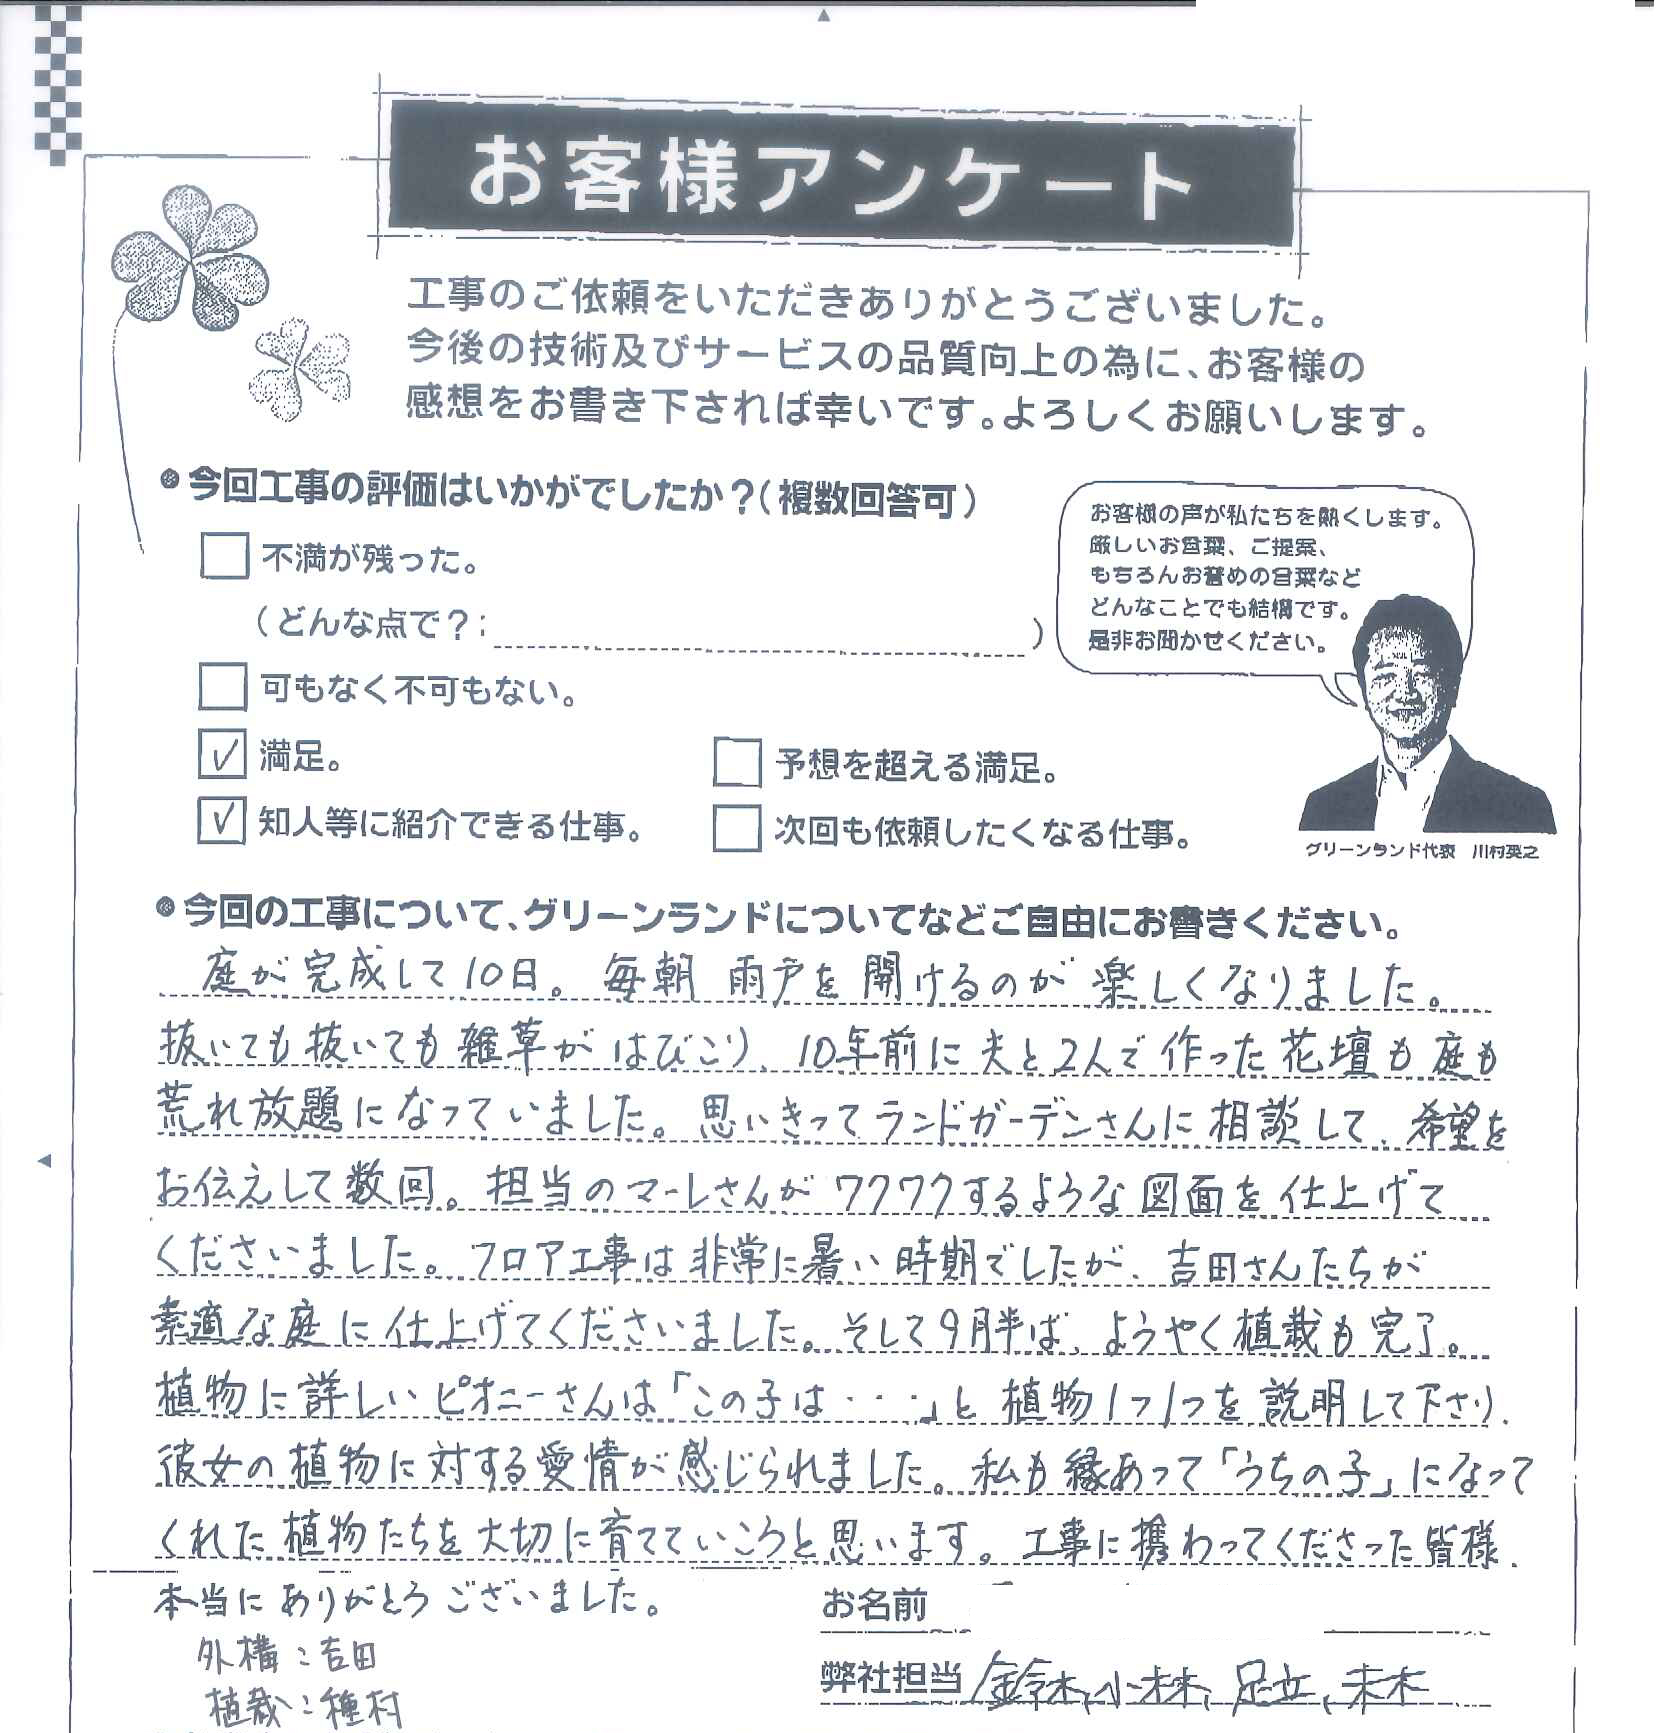 お客様アンケート
工事のご依頼をいただきありがとうございました。
今後の技術及びサービスの品質向上の為に、お客様の
感想をお書き下されば幸いです。よろしくお願いします。
今回工事の評価はいかがでしたか？（複数回答可）
不満が残った。
（どんな点で？： ）
可もなく不可もない。
満足。
予想を超える満足。
知人等に紹介できる仕事。
次回も依頼したくなる仕事。
お客様の声が私たちを熱くします。
厳しいお言葉、ご提案、
もちろんお誉めの言葉など
どんなことでも結構です。
是非お聞かせください。
グリーンランド代表 川村英之
今回の工事について、グリーンランドについてなどご自由にお書きください。
庭が完成して10日。毎朝 雨戸を開けるのが楽しくなりました。
抜いても抜いても雑草がはびこり、10年前に夫と2人で作った花壇も庭も
荒れ放題になっていました。思いきってランドガーデンさんに相談して、希望を
お伝えして数回。担当のマーレさんがワクワクするような図面を仕上げて
くださいました。フロア工事は非常に暑い時期でしたが、吉田さんたちが
素適な庭に仕上げてくださいました。そして9月半ば、ようやく植栽も完了。
植物に詳しいピオニーさんは「この子は・・・」と植物1つ1つを説明して下さり、
彼女の植物に対する愛情が感じられました。私も縁あって「うちの子」になって
くれた植物たちを大切に育てていこうと思います。工事に携わってくださった皆様、
本当にありがとうございました。
お名前
外構：吉田
弊社担当 鈴木、小林、足立、末木
植栽：種村